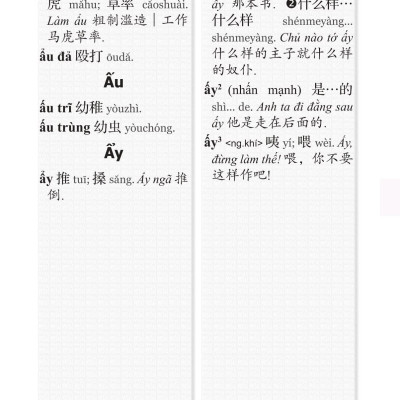 虎 mǎhu; 草率 cǎoshuài.
Làm ẩu 粗制滥造 | 工作
马虎草率.
ẩu đả 殴打 ōudǎ.
Ấu
ấu trĩ 幼稚 yòuzhì.
ấu trùng 幼虫 yòuchóng.
Ẩy
ẩy 推 tuī; 搡 sǎng. Ẩy ngã 推
倒.
ấy 那本书. ❷什么样…
什么样 shénmeyàng...
shénmeyàng. Chủ nào tớ ấy
什么样的主子就什么样
的奴仆.
ấy² (nhấn mạnh) 是…的
shì... de. Anh ta đi đằng sau
ấy 他是走在后面的.
ấy³ <ng.khí> 咦 yí; 喂 wèi. Ấy,
đừng làm thế! 喂，你不要
这样作吧!